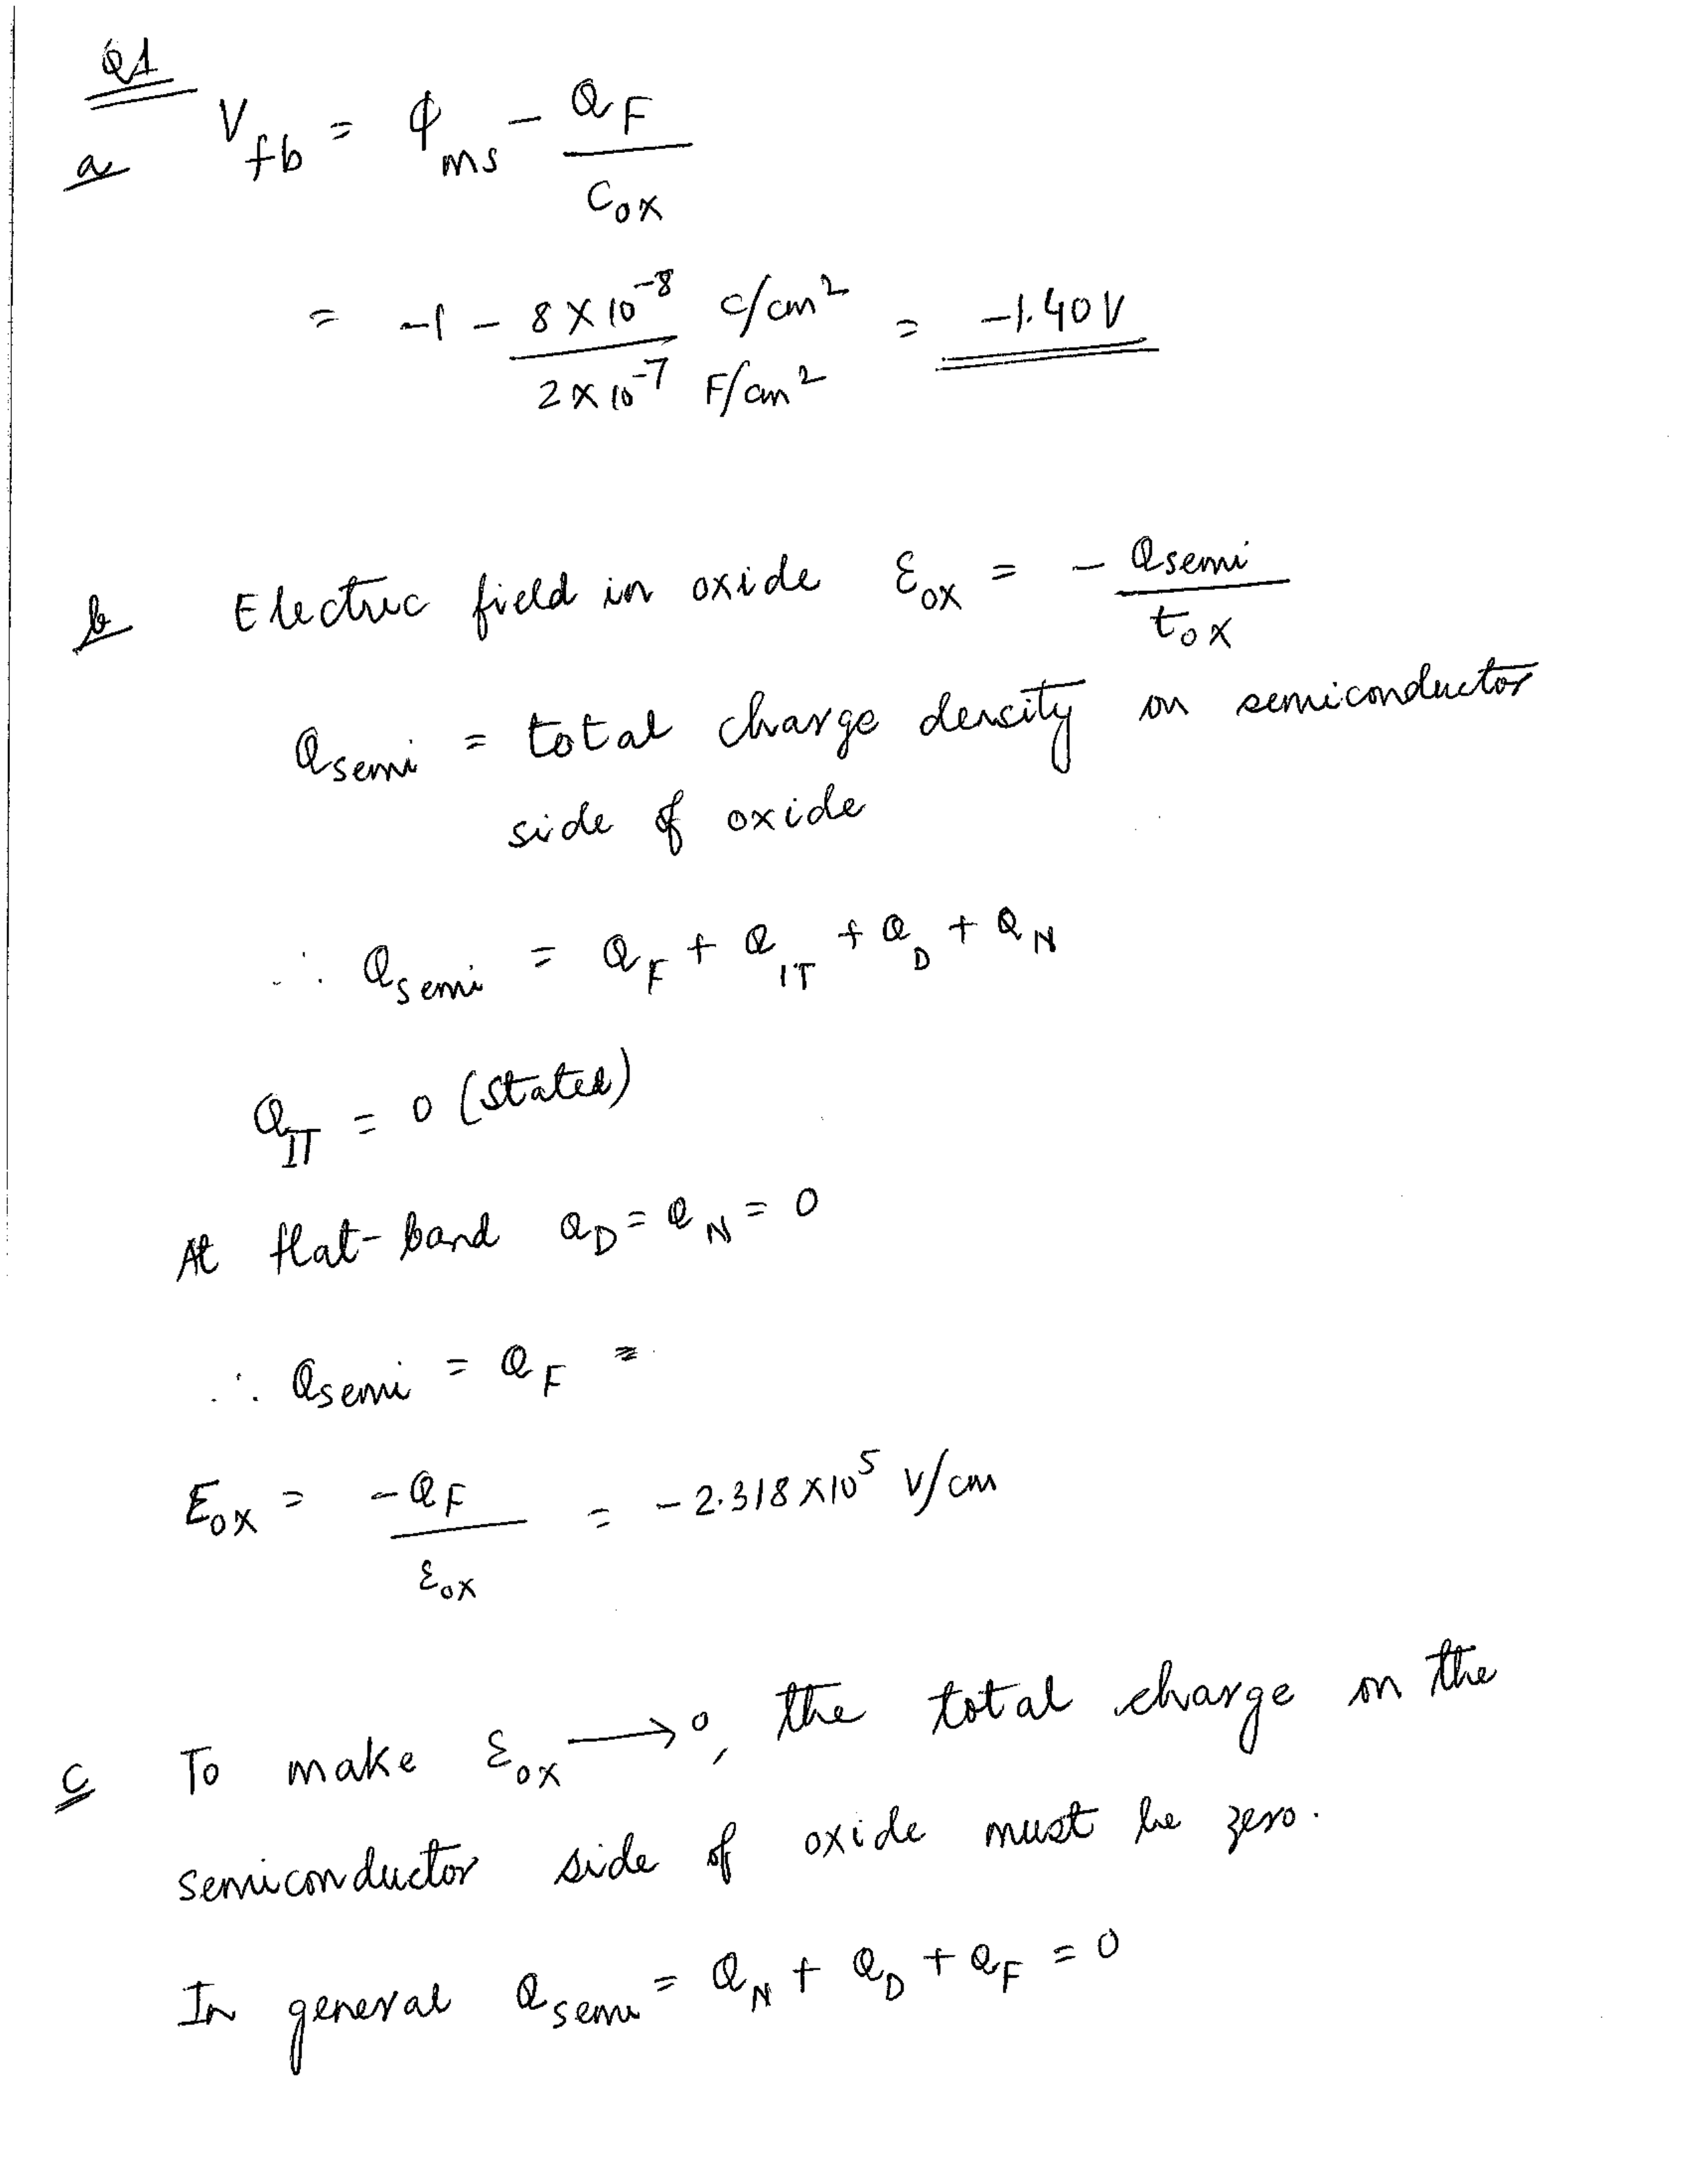 Q1
a V_fb = ϕ_ms - Q_F / C_ox
= -1 - 8 × 10^-8 C/cm^2 / 2 × 10^-7 F/cm^2 = -1.40 V
b Electric field in oxide ε_ox = - Q_semi / t_ox
Q_semi = total charge density on semiconductor
side of oxide
∴ Q_semi = Q_F + Q_IT + Q_D + Q_N
Q_IT = 0 (stated)
At flat-band Q_D = Q_N = 0
∴ Q_semi = Q_F =
E_ox = -Q_F / ε_ox = -2.318 × 10^5 V/cm
c To make ε_ox → 0, the total charge on the
semiconductor side of oxide must be zero.
In general Q_semi = Q_N + Q_D + Q_F = 0